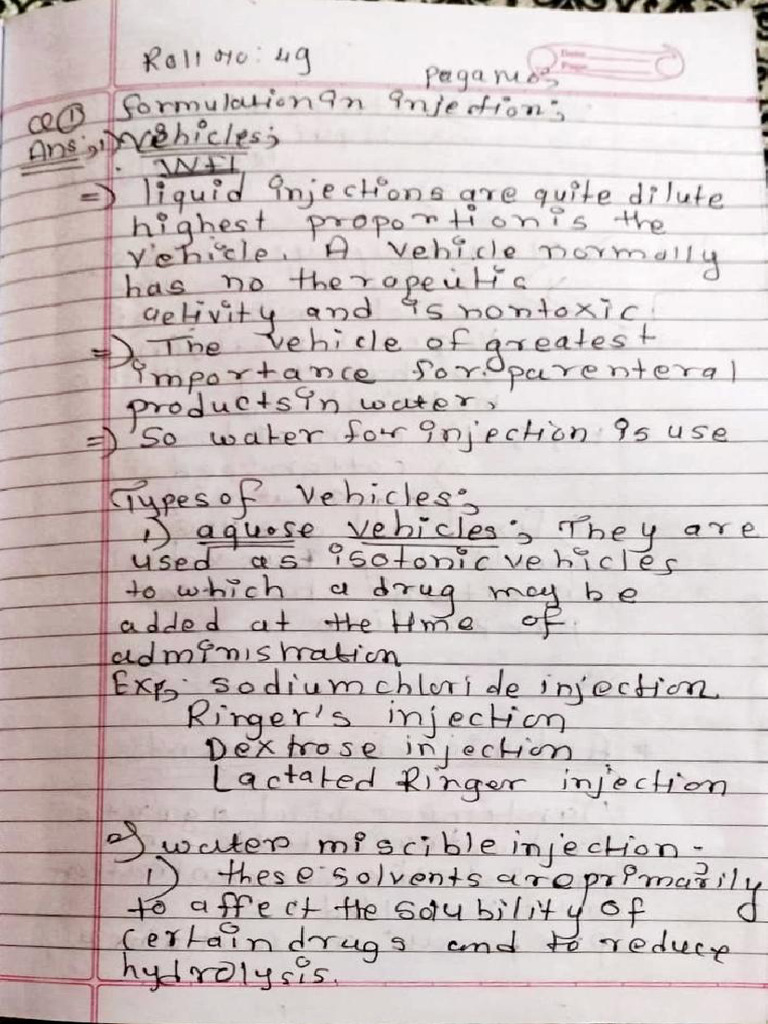 Roll no: 49
Page no:
Date:
Page:
Q① formulation in injection:
Ans:, 1) Vehicles:
WFI
=> liquid injections are quite dilute
highest proportion is the
vehicle. A vehicle normally
has no therapeutic
activity and is nontoxic
=> The vehicle of greatest
importance for parenteral
products in water,
=> So water for injection is use
Types of vehicles:
1) aquose vehicles: They are
used as isotonic vehicles
to which a drug may be
added at the time of
administration
Exp: sodium chloride injection
Ringer's injection
Dextrose injection
Lactated Ringer injection
2) water miscible injection -
1) these solvents are primarily
to affect the solubility of
certain drugs and to reduce
hydrolysis.